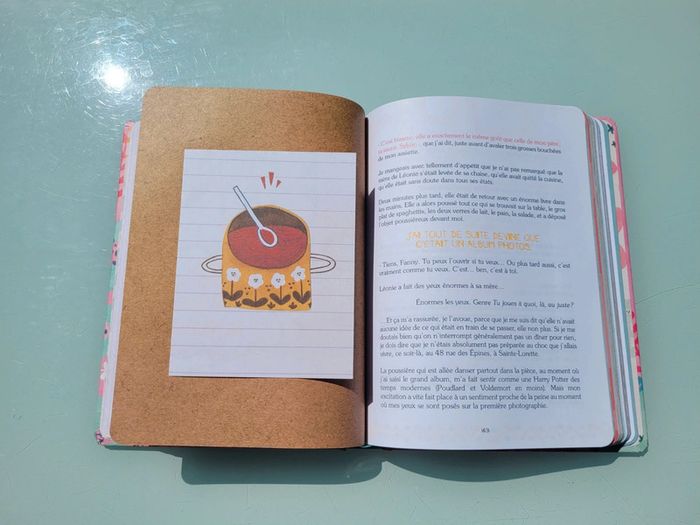 - C'est bizarre, elle a exactement le même goût que celle de mon père,
ta sauce, Sylvie, que j'ai dit, juste avant d'avaler trois grosses bouchées
de mon assiette.
Je mangeais avec tellement d'appétit que je n'ai pas remarqué que la
mère de Léonie s'était levée de sa chaise, qu'elle avait quitté la cuisine,
qu'elle était sans doute dans tous ses états.
Deux minutes plus tard, elle était de retour avec un énorme livre dans
les mains. Elle a alors poussé tout ce qui se trouvait sur la table, le gros
plat de spaghettis, les deux verres de lait, le pain, la salade, et a déposé
l'objet poussiéreux devant moi.
J'AI TOUT DE SUITE DEVINÉ QUE
C'ÉTAIT UN ALBUM PHOTOS.
- Tiens, Fanny. Tu peux l'ouvrir si tu veux... Ou plus tard aussi, c'est
vraiment comme tu veux. C'est... ben, c'est à toi.
Léonie a fait des yeux énormes à sa mère...
Énormes les yeux. Genre Tu joues à quoi, là, au juste?
... Et ça m'a rassurée, je l'avoue, parce que je me suis dit qu'elle n'avait
aucune idée de ce qui était en train de se passer, elle non plus. Si je me
doutais bien qu'on n'interrompt généralement pas un dîner pour rien,
je dois dire que je n'étais absolument pas préparée au choc que j'allais
vivre, ce soir-là, au 48 rue des Épines, à Sainte-Lorette.
La poussière qui est allée danser partout dans la pièce, au moment où
j'ai saisi le grand album, m'a fait sentir comme une Harry Potter des
temps modernes (Poudlard et Voldemort en moins). Mais mon
excitation a vite fait place à un sentiment proche de la peine au moment
où mes yeux se sont posés sur la première photographie.